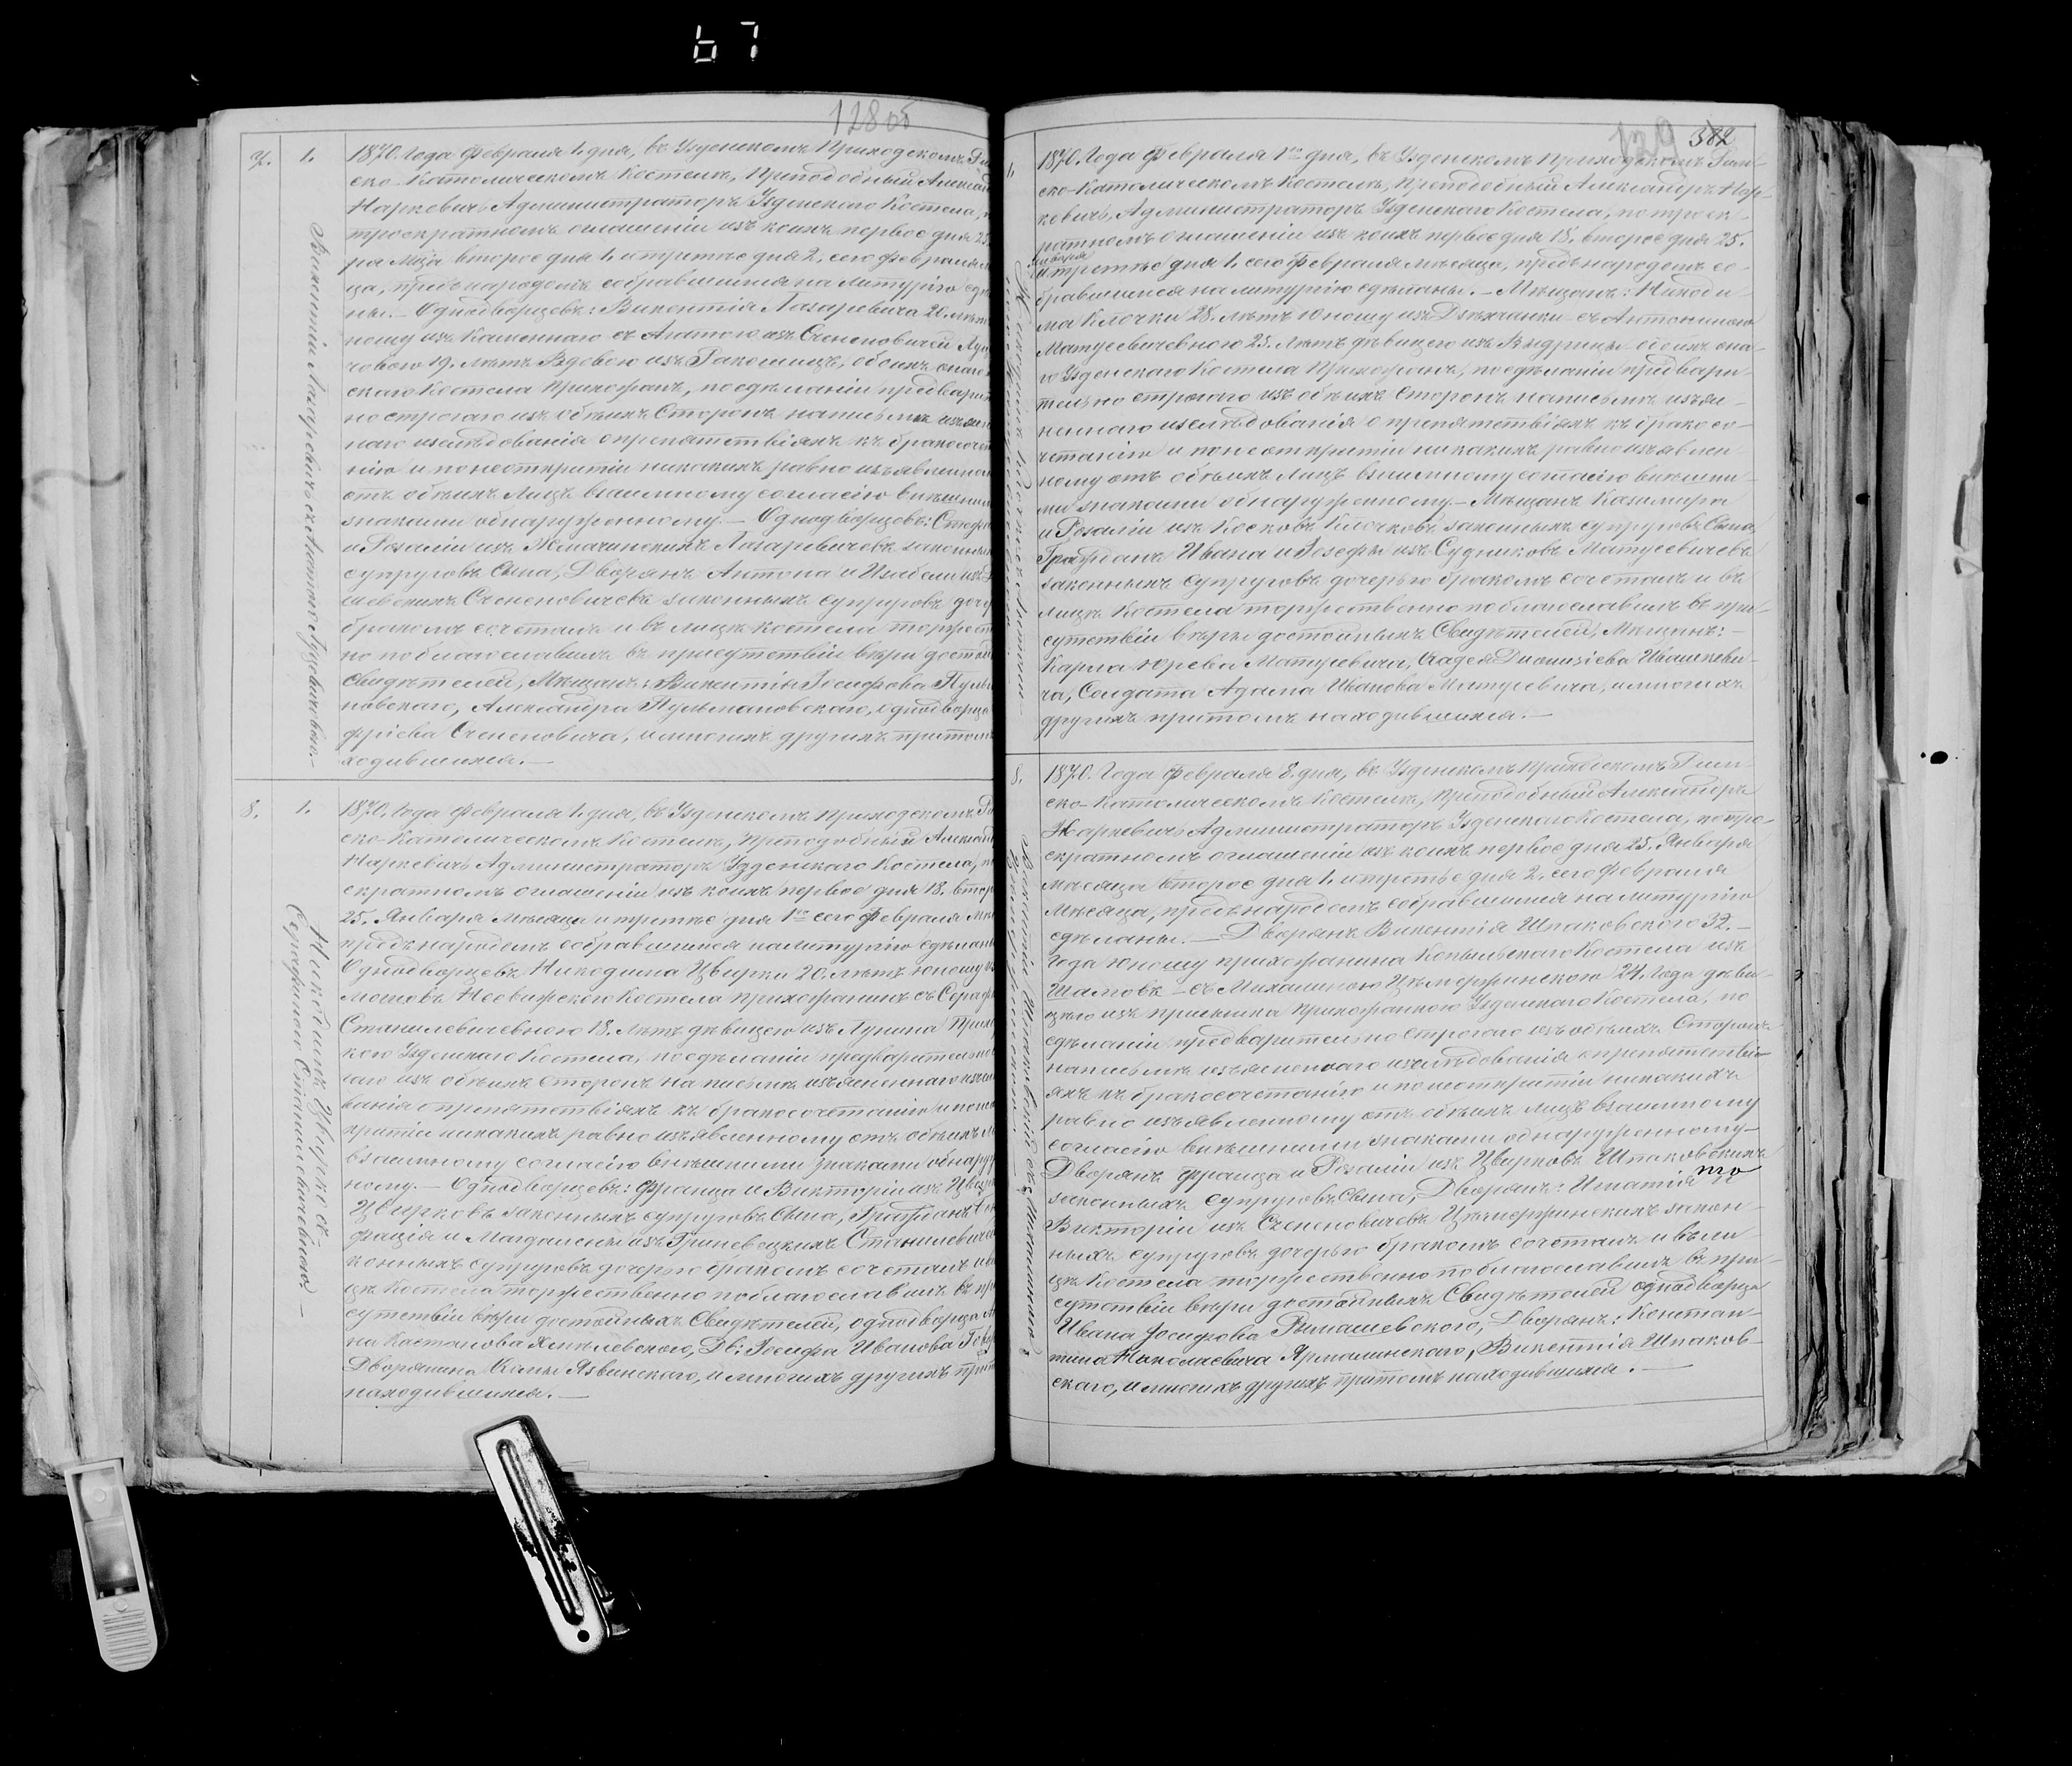 67
128 об
7.
1.
Викентій Лазаревичъ съ Антоною
1870. Года Февраля 1. дня, въ Узденскомъ Приходскомъ
ско-Католическомъ Костелѣ, Преподобный
Наркевичъ Администраторъ Узденского Костела,
троекратномъ оглашеніи изъ коихъ первое дня 25.
второе дня 1. и третье дня 2. сего Февраля
ца, предъ народомъ собравшимся на литургію
ны. — Однодворцевъ: Викентія Лазаревича 20. лѣтъ
ношу изъ Каменнаго съ Антоною изъ Счененовичей
19. лѣтъ Вдовою изъ обоихъ
скаго Костела Прихожанъ, по сдѣланіи
но строгаго изъ обѣихъ Сторонъ на письмѣ
наго изслѣдованія о препятствіяхъ къ
нію и по неоткрытіи никакихъ равно
отъ обѣихъ лицъ взаимному согласію
знаками обнаруженному. — Однодворцевъ:
и Розаліи изъ Лазаревичевъ
супруговъ Сына, Дворянъ Антона и Изабели
Счененовичевъ законныхъ супруговъ
бракомъ сочеталъ и въ лицѣ костела
но поблагославилъ въ присутствіи вѣры
Свидѣтелей, Мѣщанъ: Викентія Іосифова
новскаго, Александра
Счененовича, и многихъ другихъ притомъ
ходившихся. —
8.
1.
Никодимъ Цвирко съ
Серафиною Станилевичевною —
1870. Года Февраля 1. дня, въ Узденскомъ Приходскомъ
ско-Католическомъ Костелѣ, Преподобный
Наркевичъ, Администраторъ Узденскаго Костела,
екратномъ оглашеніи изъ коихъ первое дня 18.
25. Января Мѣсяца и третье дня 1го сего Февраля
предъ народомъ собравшимся на литургію
Однодворцевъ Никодима Цвирки 20. лѣтъ юношу
Костела прихожанинъ съ
Станилевичевною 18. лѣтъ дѣвицею изъ Лунина
кою Узденскаго Костела, по сдѣланіи предварительно
гаго изъ обѣихъ Сторонъ на письмѣ изъясненнаго
ванія о препятствіяхъ къ бракосочетанію и по
крытіи никакихъ равно изъявленному отъ обѣихъ
взаимному согласію внѣшними знаками
ному. — Однодворцевъ: Франца и Викторіи изъ
Цвирковъ законныхъ супруговъ Сына, Гражданъ
фація и Магдалены изъ Гриневецкихъ
конныхъ супруговъ дочерью бракомъ сочеталъ и
цѣ Костела торжественно поблагославилъ въ
сутствіи вѣры достойныхъ Свидѣтелей, однодворца
на Дв: Іосифа Иванова
Дворянина Язвинскаго, и многихъ другихъ
находившихся. —
129 382
1870. Года Февраля 1го дня, въ Узденскомъ Приходскомъ Рим-
ско-Католическомъ Костелѣ, Преподобный Александръ Нар-
кевичъ, Администраторъ Узденскаго Костела, по троек-
ратномъ оглашеніи изъ коихъ первое дня 18. второе дня 25.
Января
и третье дня 1. сего Февраля мѣсяца, предъ народомъ со-
бравшимся на литургію сдѣланы. — Мѣщанъ: Никоди-
ма Клочки 28. лѣтъ юношу изъ съ Антониною
Матусевичевною 25. лѣтъ дѣвицею изъ обоихъ она-
го Узденскаго Костела Прихожанъ, по сдѣланіи предвари-
тельно строгаго изъ обѣихъ Сторонъ на письмѣ изъяс-
неннаго изслѣдованія о препятствіяхъ къ бракосо-
четанію и по неоткрытіи никакихъ равно изъявлен-
ному отъ обѣихъ Лицъ взаимному согласію внѣшни-
ми знаками обнаруженному. — Мѣщанъ Казимира
и Розаліи изъ Косковъ Клочковъ законныхъ супруговъ Сына,
Гражданъ Ивана и Іозефы изъ Судниковъ Матусевичевъ
законныхъ супруговъ дочерью бракомъ сочеталъ и въ
лицѣ Костела торжественно поблагославилъ въ при-
сутствіи вѣры достойныхъ Свидѣтелей, Мѣщанъ: —
Карла Юрева Матусевича, Фадея Діонизіева Ивашкеви-
ча, Солдата Адама Иванова Матусевича, и многихъ
другихъ притомъ находившихся. —
8.
1870. Года Февраля 8. дня, въ Узденскомъ Приходскомъ Рим-
ско-Католическомъ Костелѣ, Преподобный Александръ
Наркевичъ Администраторъ Узденскаго Костела, по тро-
екратномъ оглашеніи изъ коихъ первое дня 25. Января
мѣсяца второе дня 1. и третье дня 2. сего Февраля
Мѣсяца, предъ народомъ собравшимся на литургію
сдѣланы. — Дворянъ Викентія Шпаковского 32. —
Года юношу прихожанина Копыльскаго Костела изъ
съ Михалиною 24. Года дѣви-
цею изъ прихожанкою Узденскаго Костела, по
сдѣланіи предварительно строгаго изъ обѣихъ Сторонъ
на письмѣ изъясненнаго изслѣдованія о препятстві-
яхъ къ бракосочетанію и по неоткрытіи никакихъ
равно изъявленному отъ обѣихъ лицъ взаимному
согласію внѣшними знаками обнаруженному —
Дворянъ Франца и Розаліи изъ Цвирковъ Шпаковскихъ
законныхъ супруговъ Сына, Дворянъ: Игнатія
Викторіи изъ Счененовичевъ закон-
ныхъ супруговъ дочерью бракомъ сочеталъ и въ ли-
цѣ Костела торжественно поблагославилъ въ при-
сутствіи вѣры достойныхъ Свидѣтелей однодворца
Ивана Іосифова Рымашевского, Дворянъ: Констан-
тина Николаевича Ярмалинскаго, Викентія Шпаков-
скаго, и многихъ другихъ притомъ находившихся. —